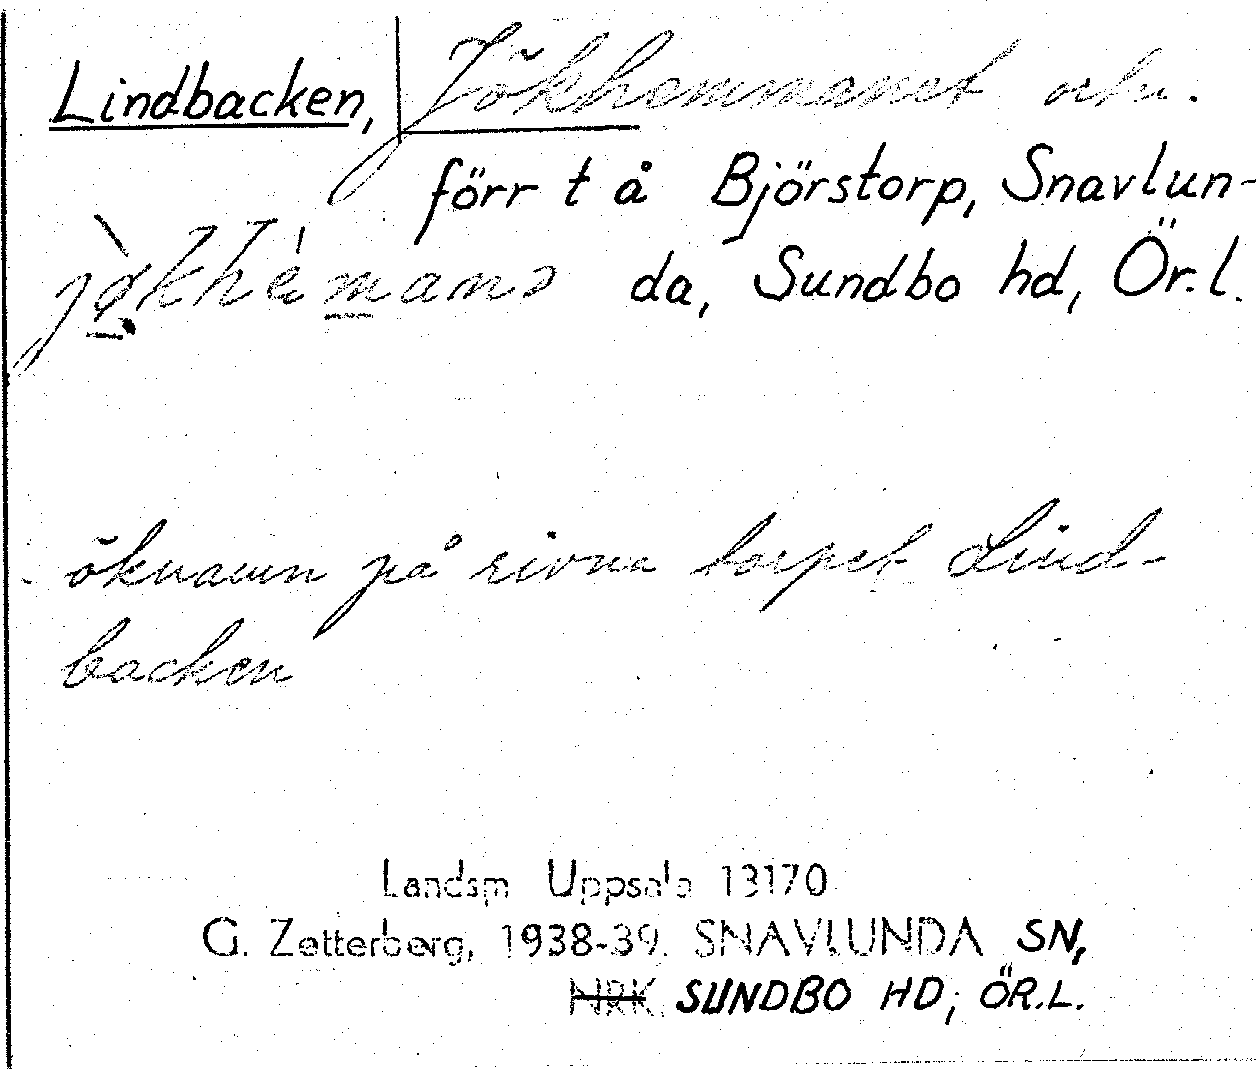 Lindbacken, Jökhemmanet och.
förr t å Björstorp, Snavlun-
da, Sundbo hd, Ör.l.
öknamn på rivna torpet Lind-
backen
Landsm Uppsala 13170
G. Zetterberg, 1938-39. SNAVLUNDA SN,
NRK. SUNDBO HD, ÖR.L.